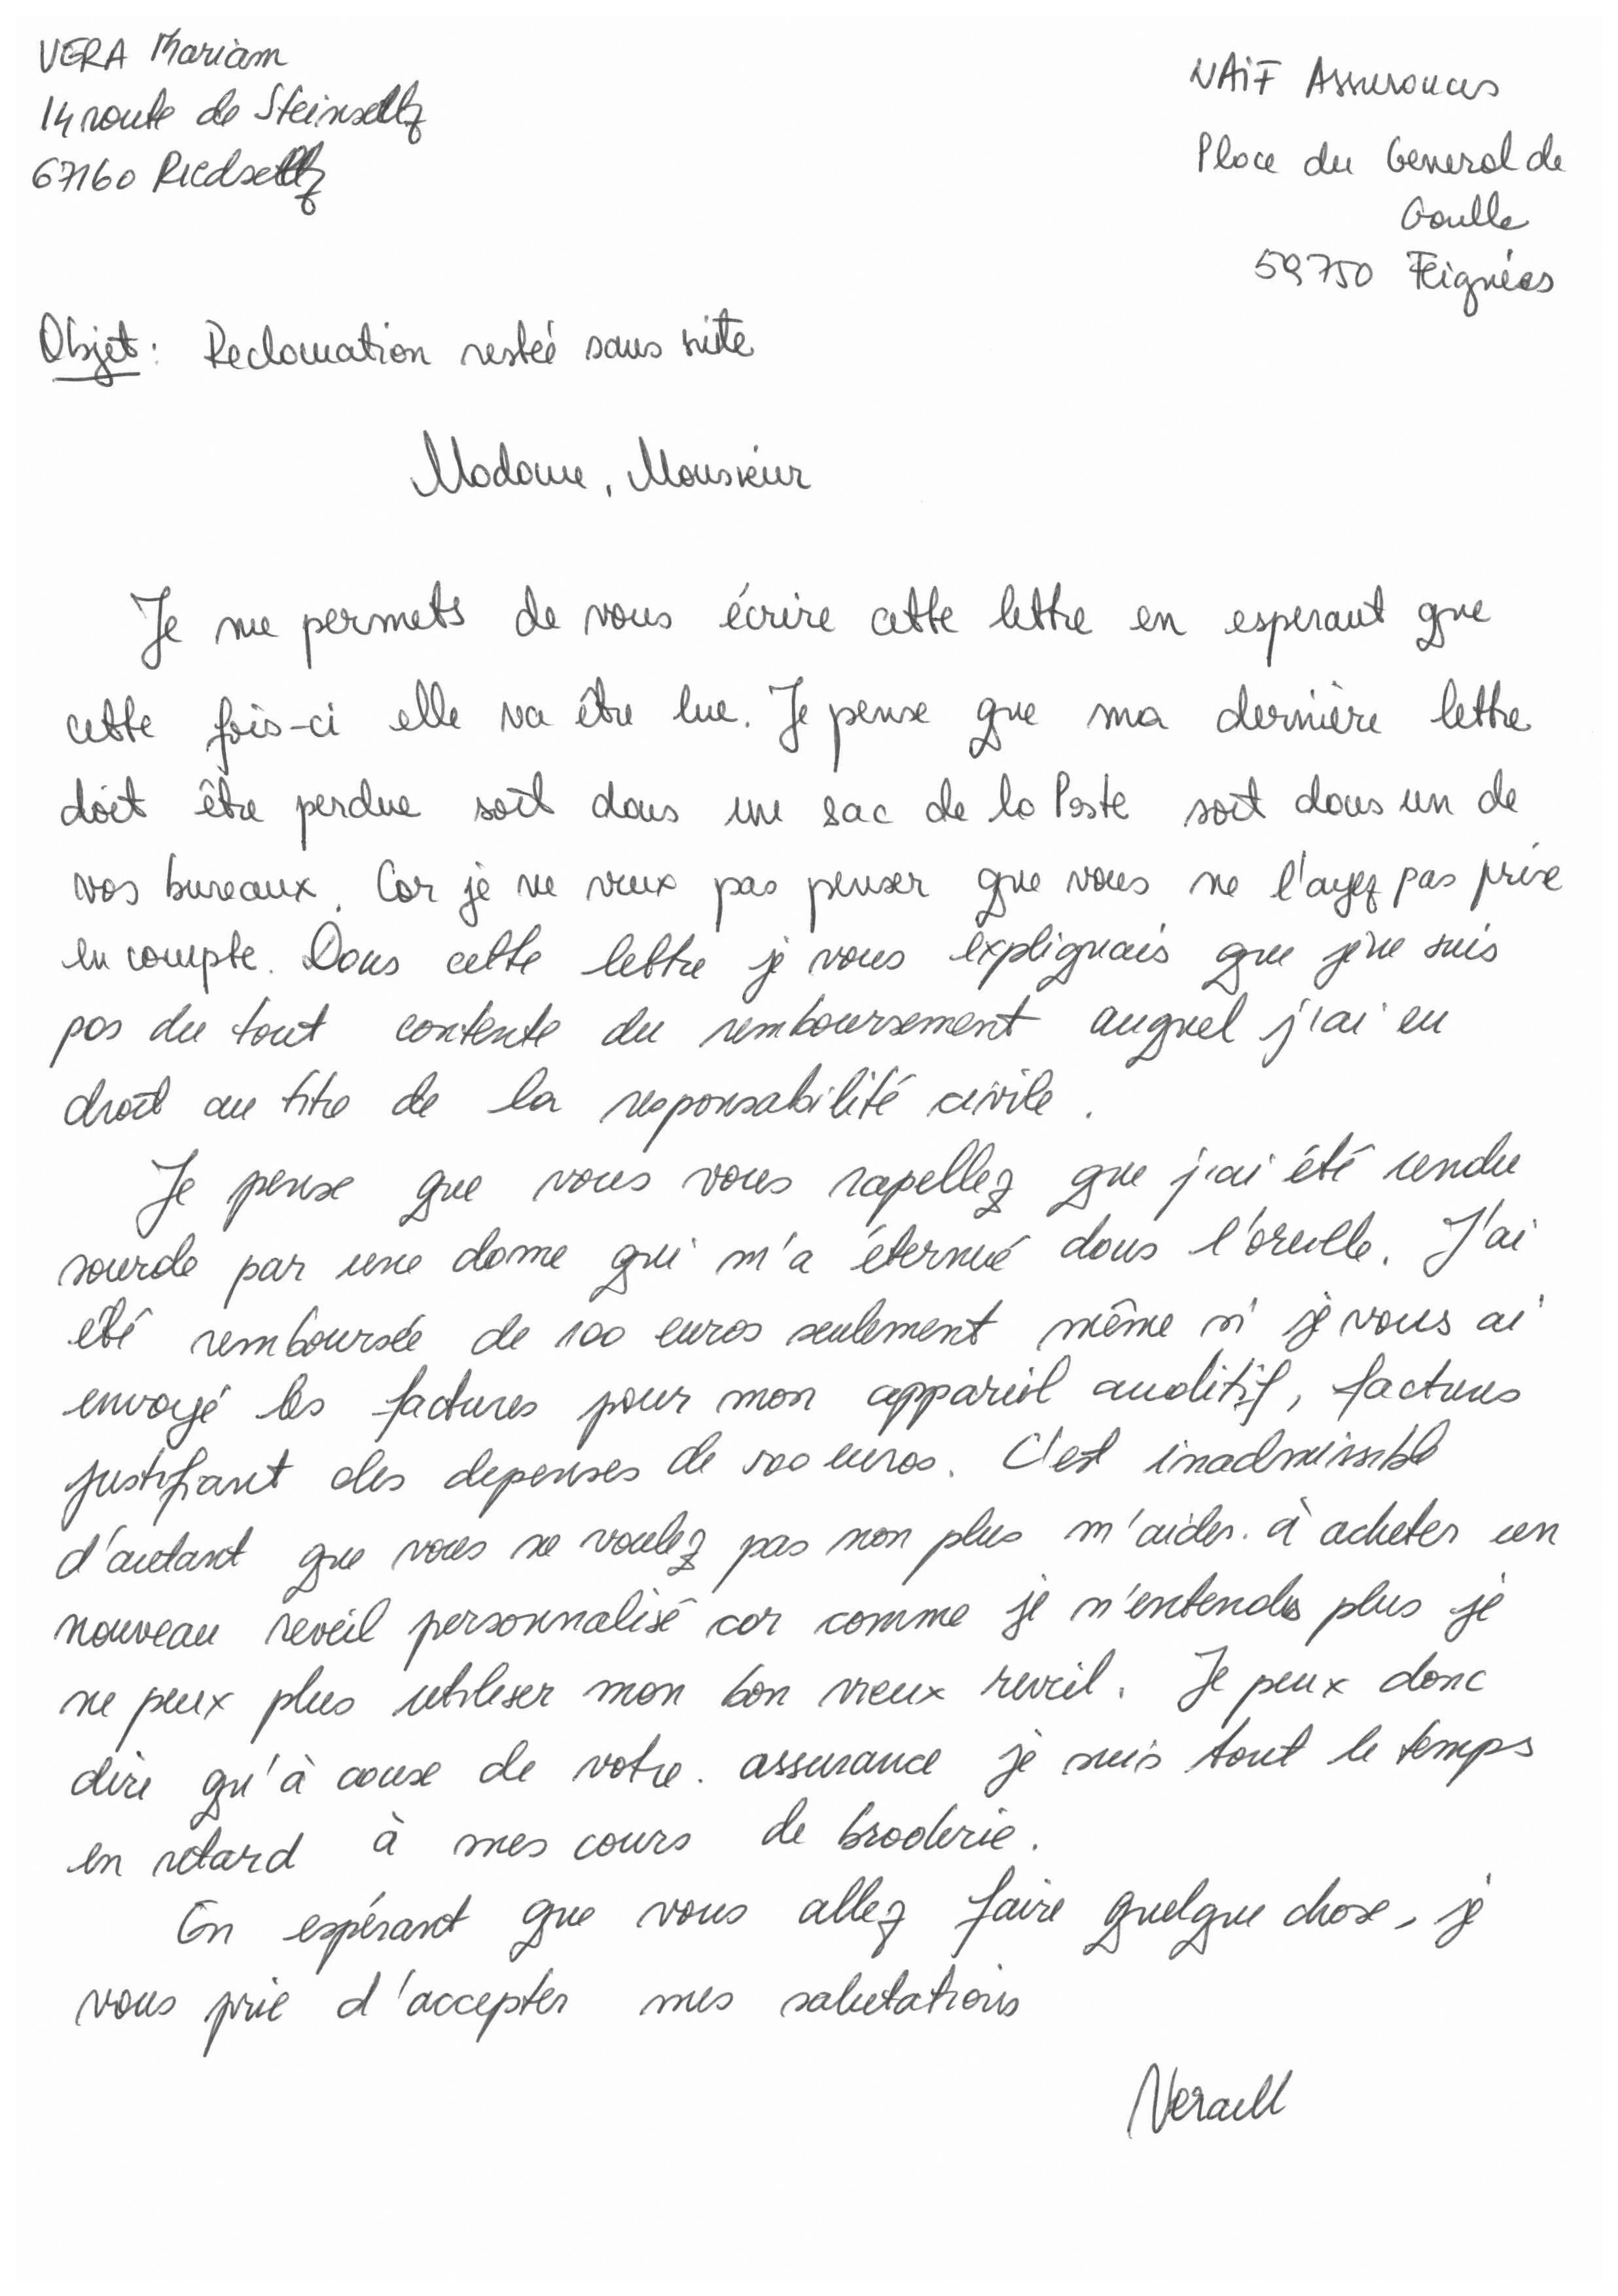 VERA Mariam
14 route de Steinseltz
67160 Riedseltz
NAiF Assurances
Place du General de
Gaulle
59750 Feignies
Objet : Reclamation restée sans suite
Madame, Monsieur
Je me permets de vous écrire cette lettre en esperant que
cette fois-ci elle va être lue. Je pense que ma dernière lettre
doit être perdue soit dans un sac de la Poste soit dans un de
vos bureaux. Car je ne veux pas penser que vous ne l'ayez pas prise
en compte. Dans cette lettre je vous expliquais que je ne suis
pas du tout contente du remboursement auquel j'ai eu
droit au titre de la responsabilité civile.
Je pense que vous vous rapellez que j'ai été rendu
sourde par une dame qui m'a éternué dans l'oreille. J'ai
été remboursée de 100 euros seulement même si je vous ai
envoyé les factures pour mon appareil auditif, factures
justifiant des depenses de 500 euros. C'est inadmissible
d'autant que vous ne voulez pas non plus m'aider à acheter un
nouveau reveil personnalisé car comme je n'entends plus je
ne peux plus utiliser mon bon vieux reveil. Je peux donc
dire qu'à cause de votre assurance je suis tout le temps
en retard à mes cours de broderie.
En espérant que vous allez faire quelque chose, je
vous prie d'accepter mes salutations